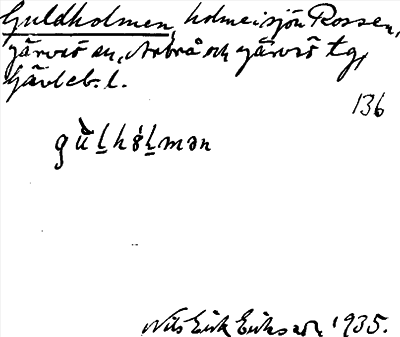 Guldholmen, holme i sjön Rossen,
Järvsö sn, Arbrå och Järvsö tg,
Gävleb. l.
136
gù̀ḻhóḻmən
Nils Erik Eriksson 1935.